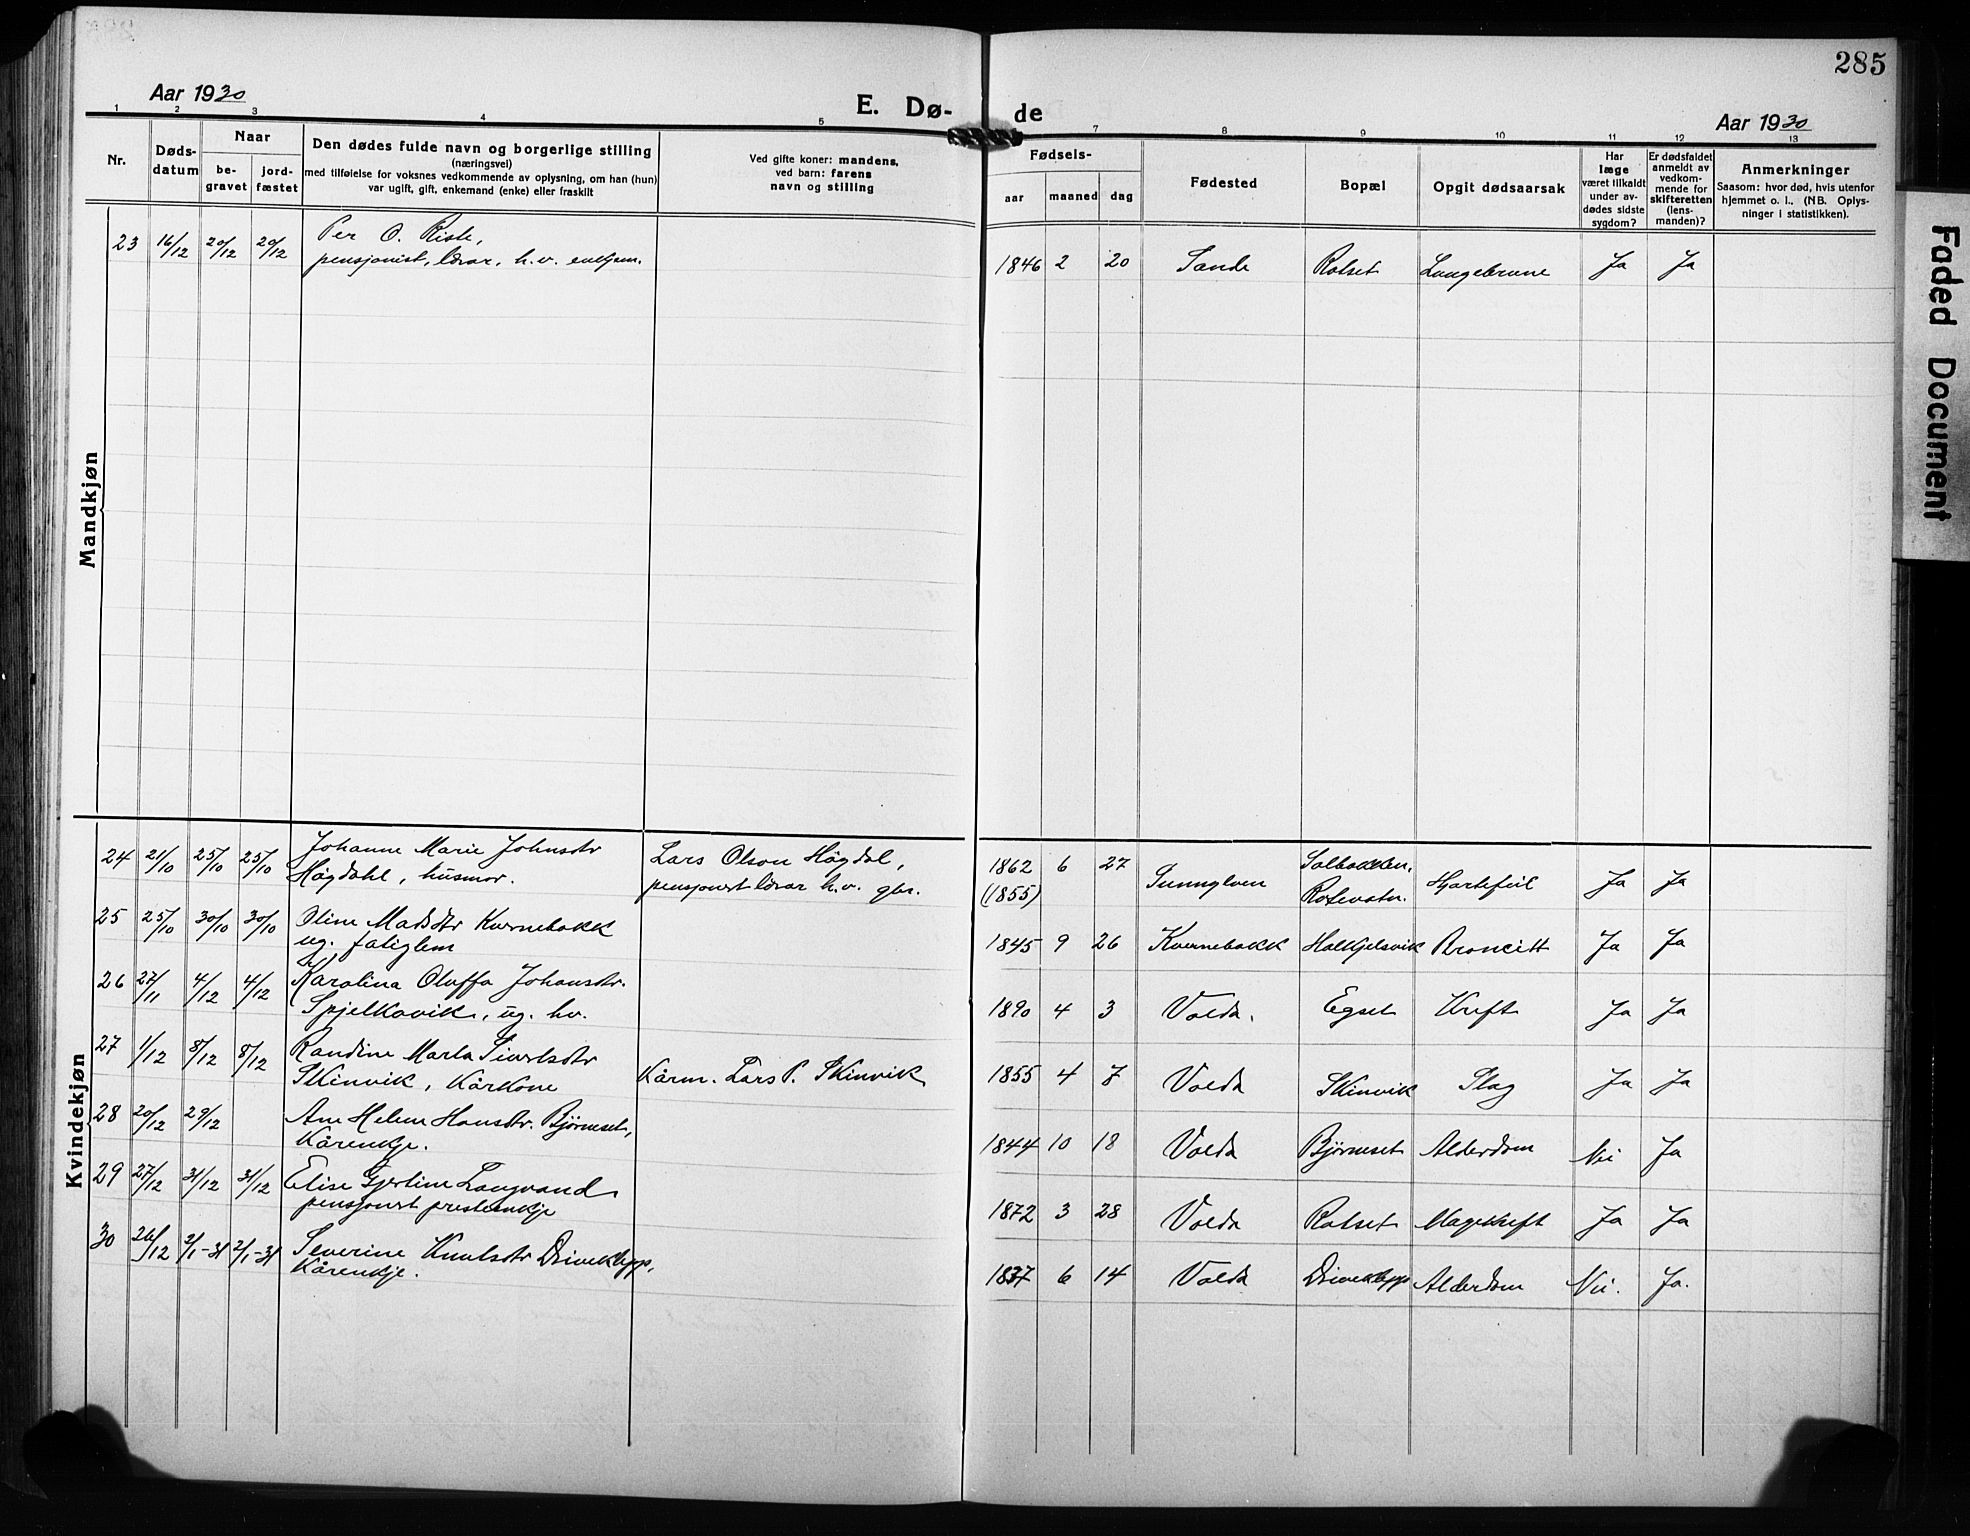 285
Aar 1930
E. Dø-
de
Aar 1930
1 2 3 4 5 7 8 9 10 11 12 13
Nr.
Døds-
datum
Naar
be-
gravet
jord-
fæstet
Den dødes fulde navn og borgerlige stilling
(næringsvei)
med tilføielse for voksnes vedkommende av oplysning, om han (hun)
var ugift, gift, enkemand (enke) eller fraskilt
Ved gifte koner: mandens,
ved barn: farens
navn og stilling
Fødsels-
aar maaned dag
Fødested
Bopæl
Opgit dødsaarsak
Har
læge
været tilkaldt
under av-
dødes sidste
sygdom?
Er dødsfaldet
anmeldt av
vedkom-
mende for
skifteretten
(lens-
manden)?
Anmerkninger
Saasom: hvor død, hvis utenfor
hjemmet o. l., (NB. Oplys-
ninger i statistikken).
Mandkjøn
23 16/12 20/12 20/12 Per O. Riste,
pensjonist, lærar, h.v. enkjem. 1846 2 20 Sande Rotset Lungebrune Ja Ja
Kvindekjøn
24 21/10 25/10 25/10 Johanne Marie Johnsdtr
Høgdahl, husmor.
Lars Olson Høgdal,
pensjonert lærar h.v. gbr.
1862 6 27
(1855) Sunnylven Solbakken,
Rotevatn. Hjartefeil Ja Ja
25 25/10 30/10 30/10 Oline Madsdtr Kvernebakk
ug. fatiglem 1845 9 26 Kvernebakk Halkjelsvik Broncitt Ja Ja
26 27/11 4/12 4/12 Karolina Oluffa Johansdtr.
Spjelkavik, ug. hv. 1890 4 3 Volda. Egset Kreft Ja Ja
27 1/12 8/12 8/12 Randine Marta Sivertsdtr
Skinvik, Kårkone Kårm. Lars P. Skinvik 1855 4 7 Volda Skinvik Slag Ja Ja
28 20/12 29/12 Ane Helene Hansdtr. Bjørneset,
Kårenkje. 1844 10 18 Volda Bjørneset Alderdom Nei Ja
29 27/12 31/12 31/12 Elise Gjertine Langvand
pensjonert presteenkje 1872 3 28 Volda Rotset Magekreft Ja Ja
30 26/12 2/1-31 2/1-31 Severine Knutsdtr Driveklepp,
Kårenkje. 1837 6 14 Volda Driveklepp Alderdom Nei. Ja.
Faded Document